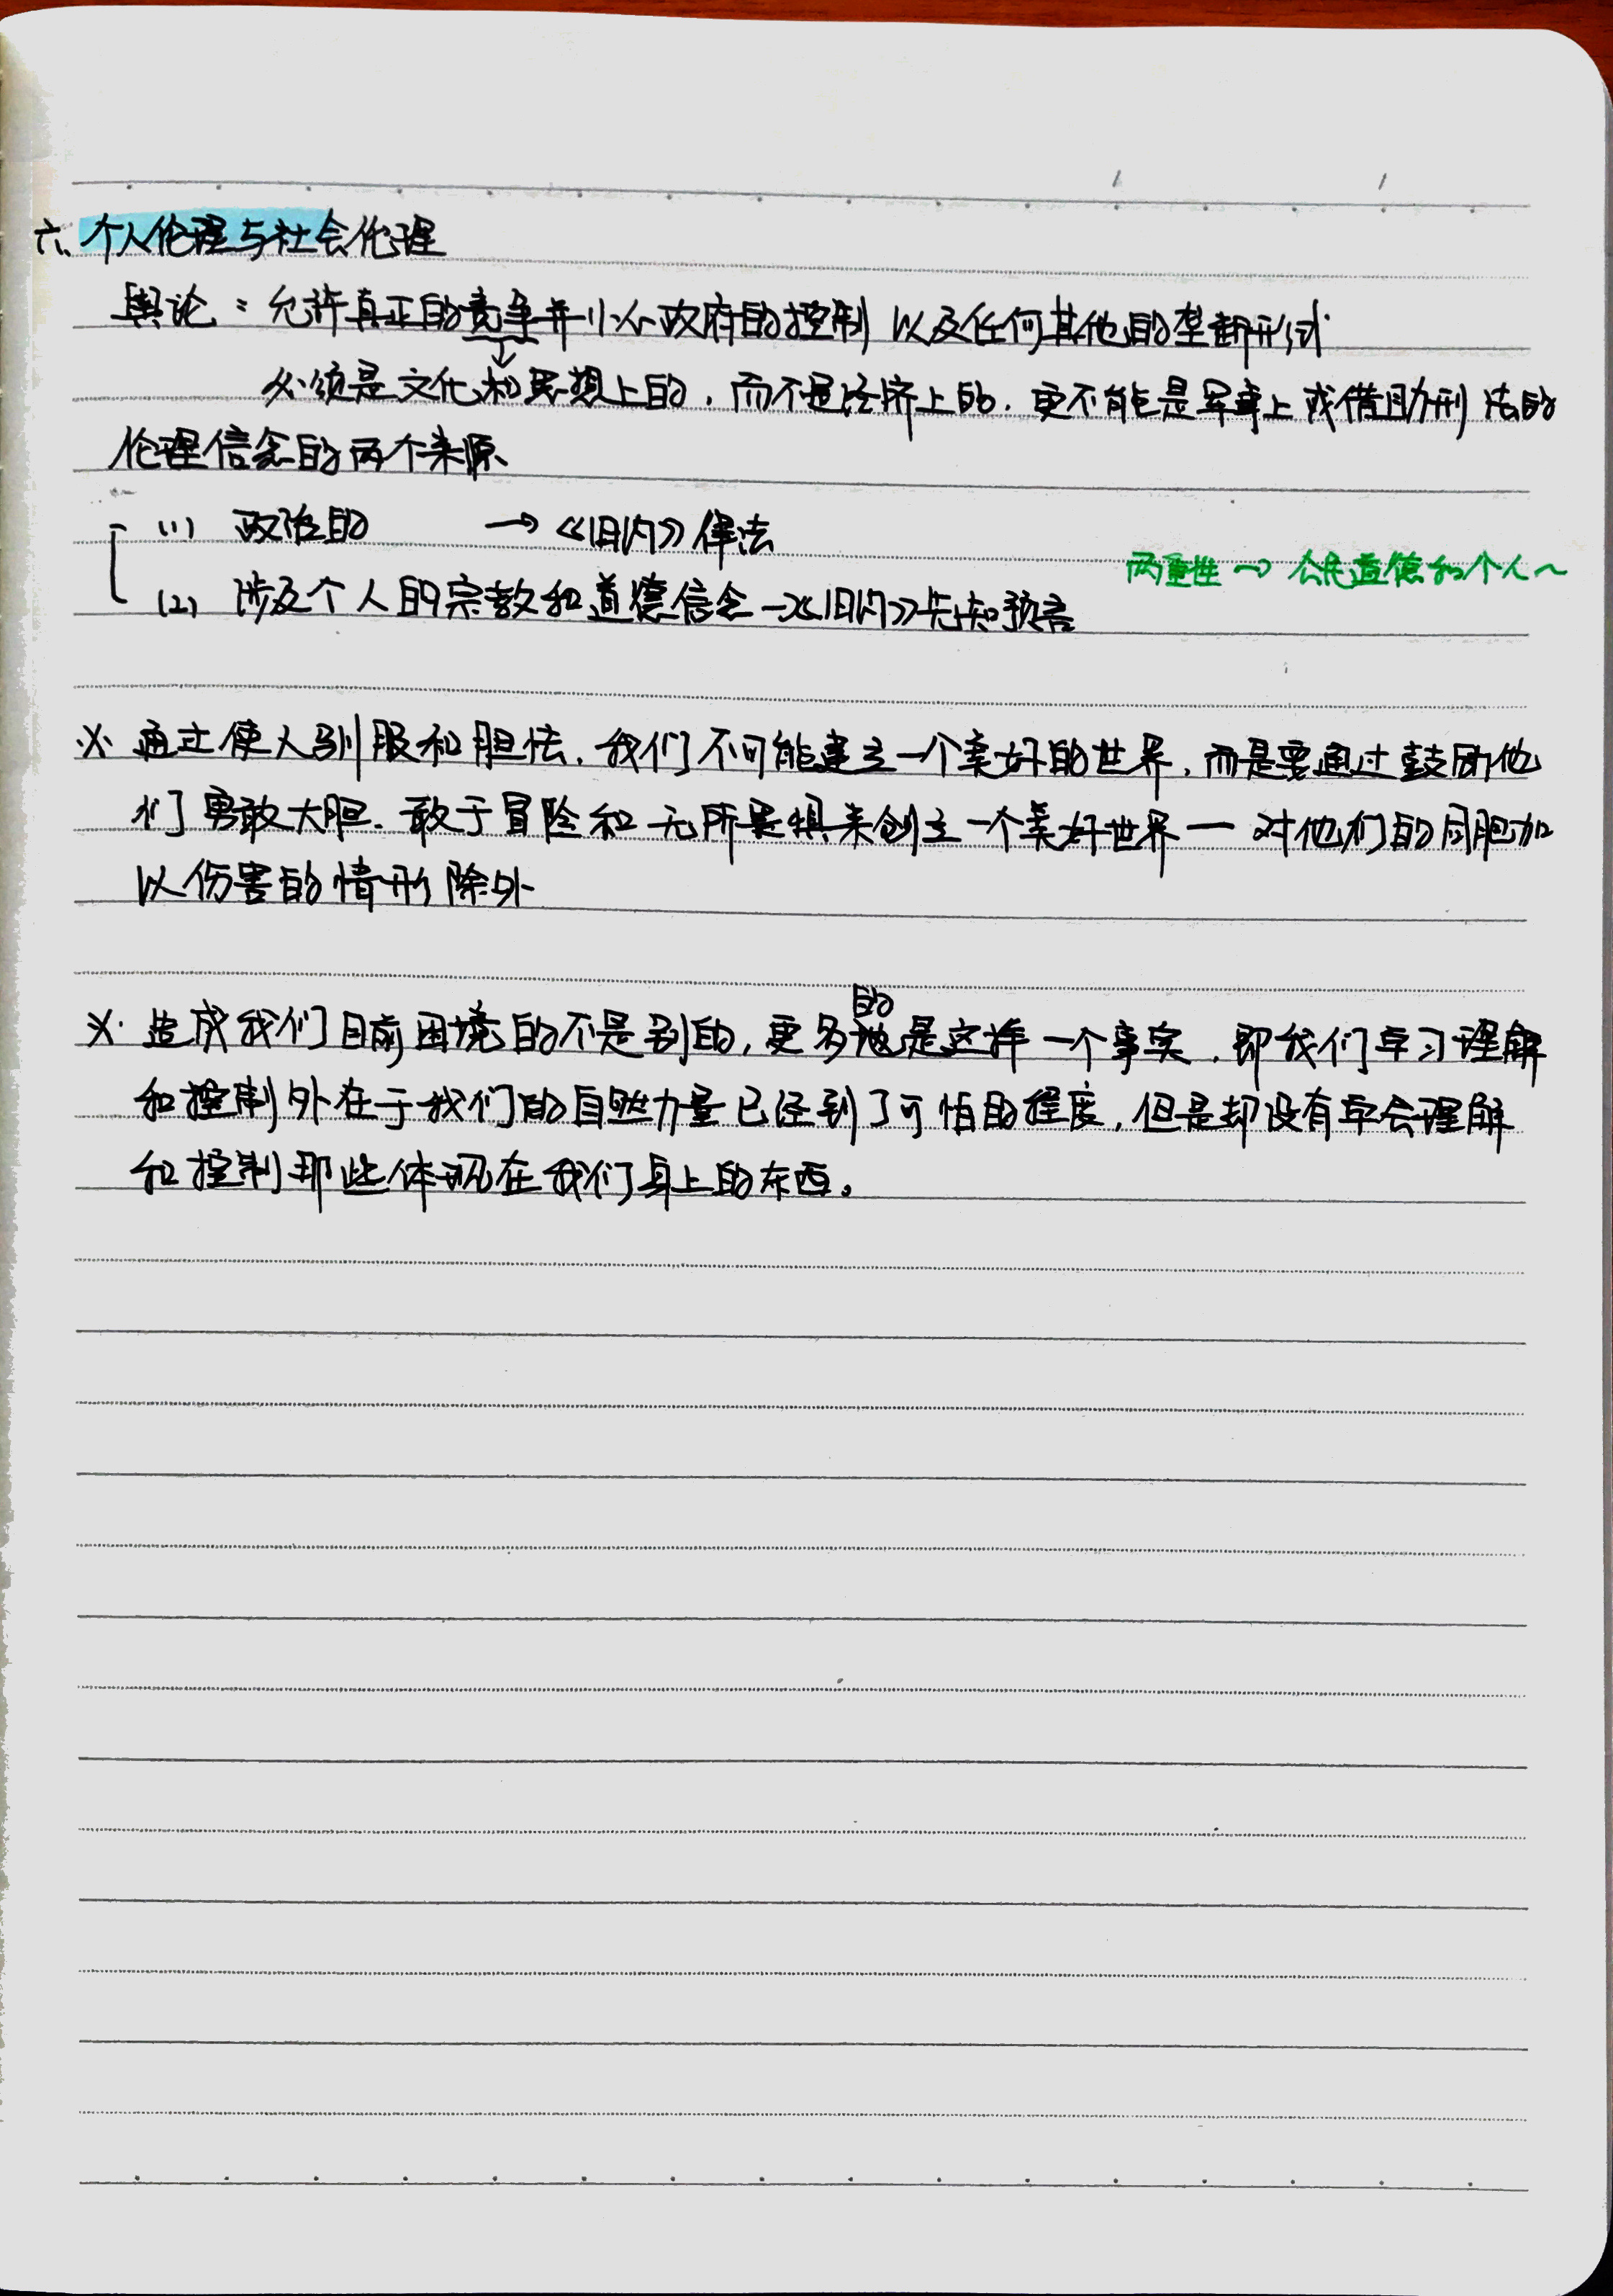 六、个人伦理与社会伦理
舆论：允许真正的竞争并小心政府的控制 以及任何其他的垄断形式
↓
必须是文化和思想上的，而不是经济上的，更不能是军事上或借助刑法的
伦理信念的两个来源
(1) 政治的 → 《旧约》律法
两重性 → 公民道德和个人～
(2) 涉及个人的宗教和道德信念 →《旧约》先知预言
※ 通过使人驯服和胆怯，我们不可能建立一个美好的世界，而是要通过鼓励他
们勇敢大胆、敢于冒险和无所畏惧来创立一个美好世界 — 对他们的同胞加
以伤害的情形除外
的
※ 造成我们目前困境的不是别的，更多地是这样一个事实，即我们学习理解
和控制外在于我们的自然力量已经到了可怕的程度，但是却没有学会理解
和控制那些体现在我们身上的东西。